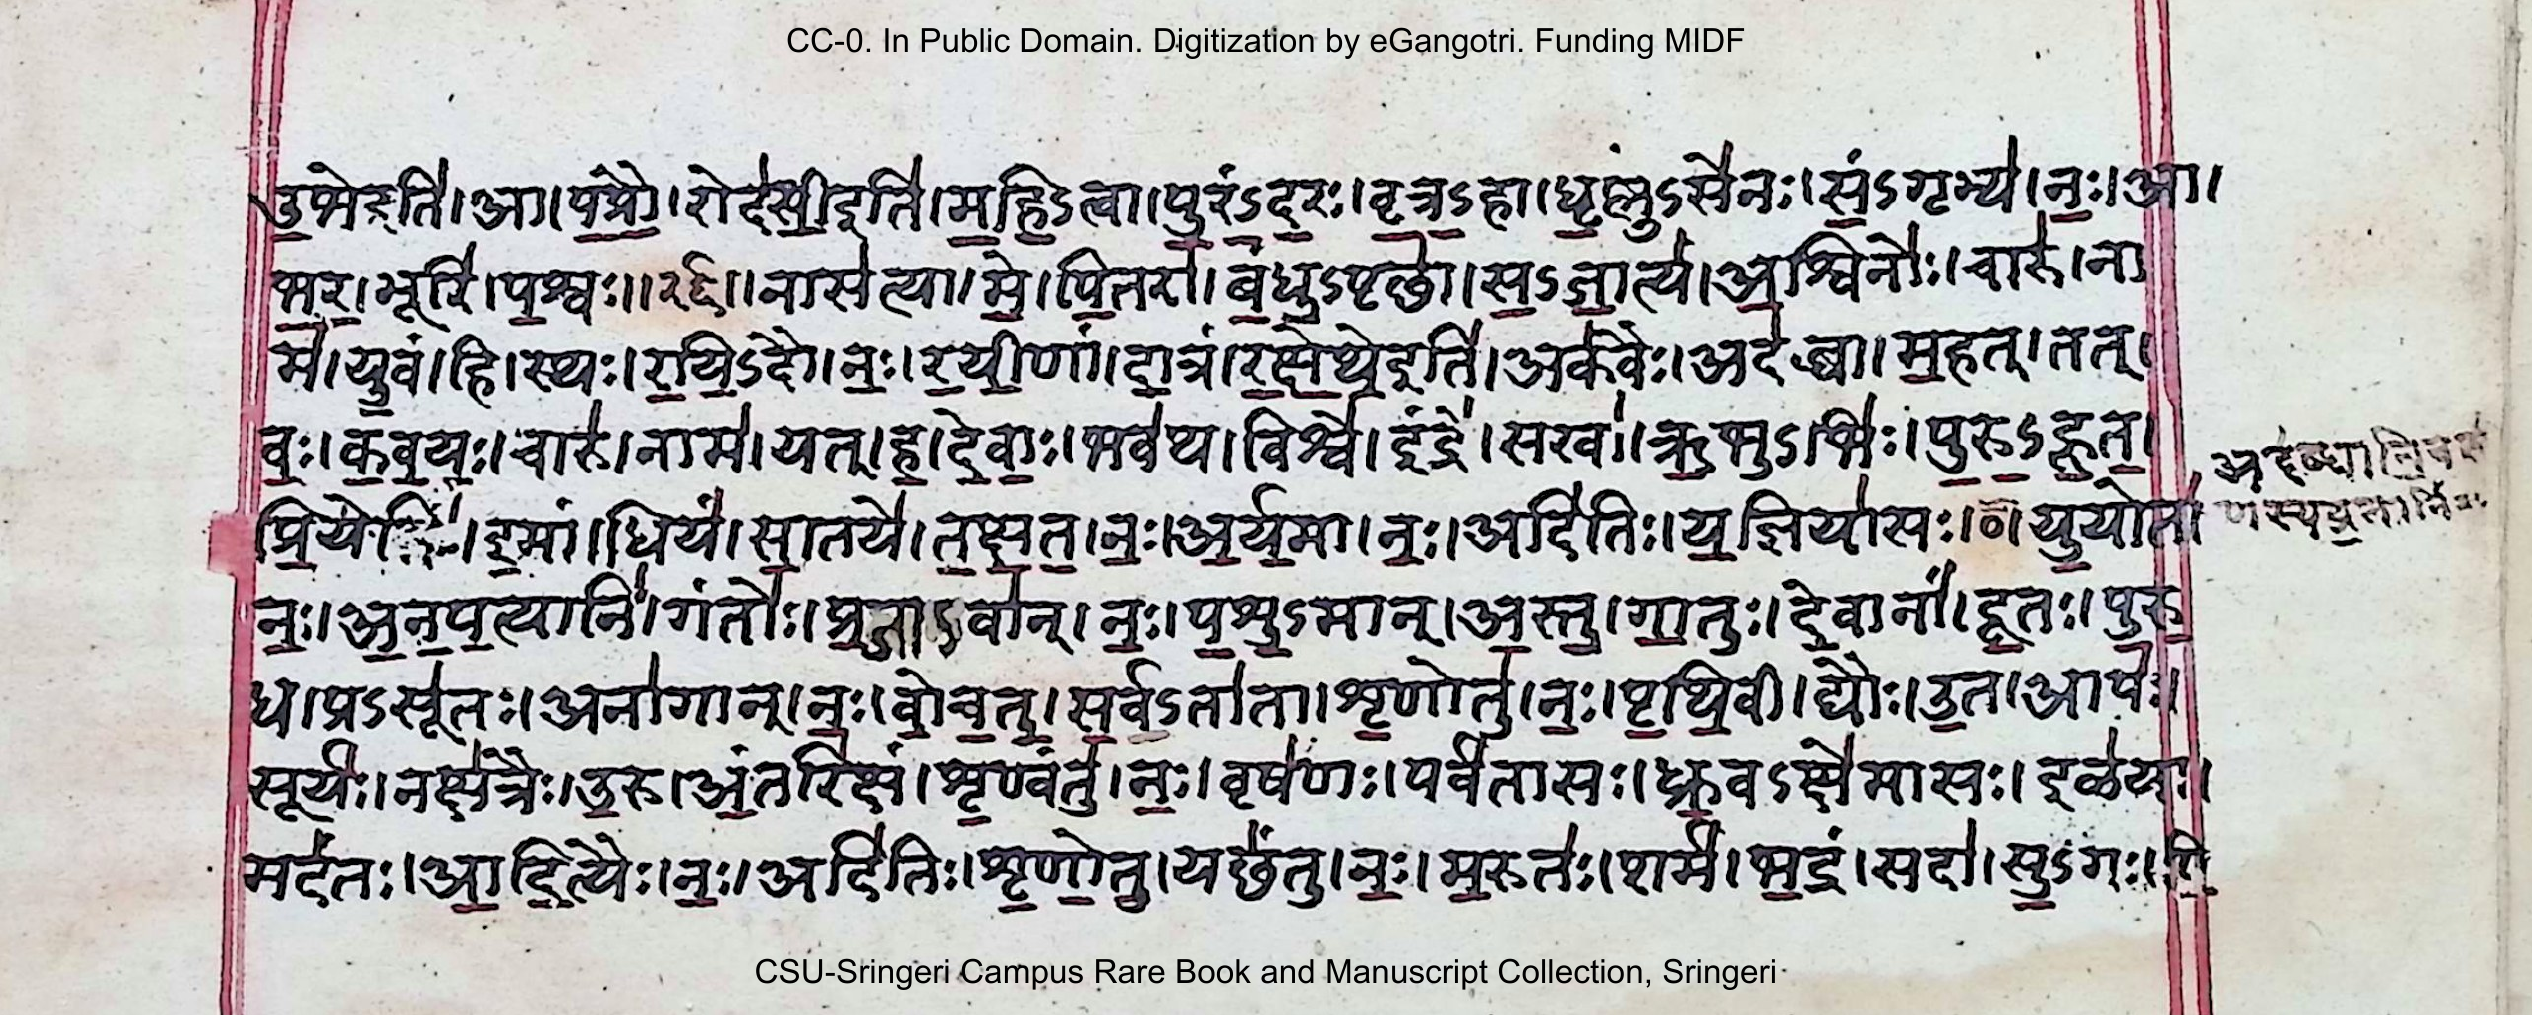 CC-0. In Public Domain. Digitization by eGangotri. Funding MIDF
उ॒भेइति॑।आ।प॑प्रौ॒।रोद॑सी॒इति॑।म॒हि॒ऽत्वा।पु॒रं॒ऽद॒रः।वृ॒त्र॒ऽहा।धृ॒ष्णुऽसे॑नः।सं॒ऽगृभ्य॑।नः॒।आ।
भ॒र॒।भूरि॑।प॒श्वः॥१५॥नास॑त्या।मे॒।पि॒तरा॑।बं॒धु॒ऽपृछा॑।स॒ऽजा॒त्यं॑।अ॒श्विनोः॑।चारु॑।ना
म॑।यु॒वं।हि।स्थः।र॒यि॒ऽदौ।नः॒।र॒यी॒णां।दा॒त्रं।र॒क्षे॒थे॒इति॑।अक॑वैः।अद॑ब्धा।म॒हत्।तत्।
वः॒।क॒व॒यः॒।चारु॑।नाम॑।यत्।ह॒।दे॒वाः॒।भव॑थ।विश्वे॑।इंद्रे॑।सखा॑।ऋ॒भुऽभिः॑।पु॒रु॒ऽहू॒त॒।
प्रि॒येभिः॑।इ॒मां।धियं॑।सा॒तये॑।त॒क्ष॒त॒।नः॒।अ॒र्य॒मा।नः॒।अदि॑तिः।य॒ज्ञिया॑सः।०।यु॒योत॑।
नः॒।अ॒न॒प॒त्यानि॑।गंतोः॑।प्र॒जाऽवा॑न्।नः॒।प॒शु॒ऽमान्।अ॒स्तु॒।गा॒तुः।दे॒वानां॑।दू॒तः।पु॒रु॒
ध।प्रऽसू॑तः।अना॑गान्।नः॒।वो॒च॒तु॒।स॒र्वऽता॑ता।शृ॒णोतु॑।नः॒।पृ॒थि॒वी।द्यौः।उ॒त।आपः॑।
सूर्यः॑।नक्ष॑त्रैः।उ॒रु।अं॒तरि॑क्षं।शृ॒ण्वंतु॑।नः॒।वृष॑णः।पर्व॑तासः।ध्रु॒वऽक्षे॑मासः।इळ॑या।
मद॑तः।आ॒दि॒त्यैः।नः॒।अदि॑तिः।शृ॒णो॒तु॒।यछं॑तु।नः॒।म॒रुतः॑।शर्म॑।भ॒द्रं।सदा॑।सु॒ऽगः।पि॒
CSU-Sringeri Campus Rare Book and Manuscript Collection, Sringeri